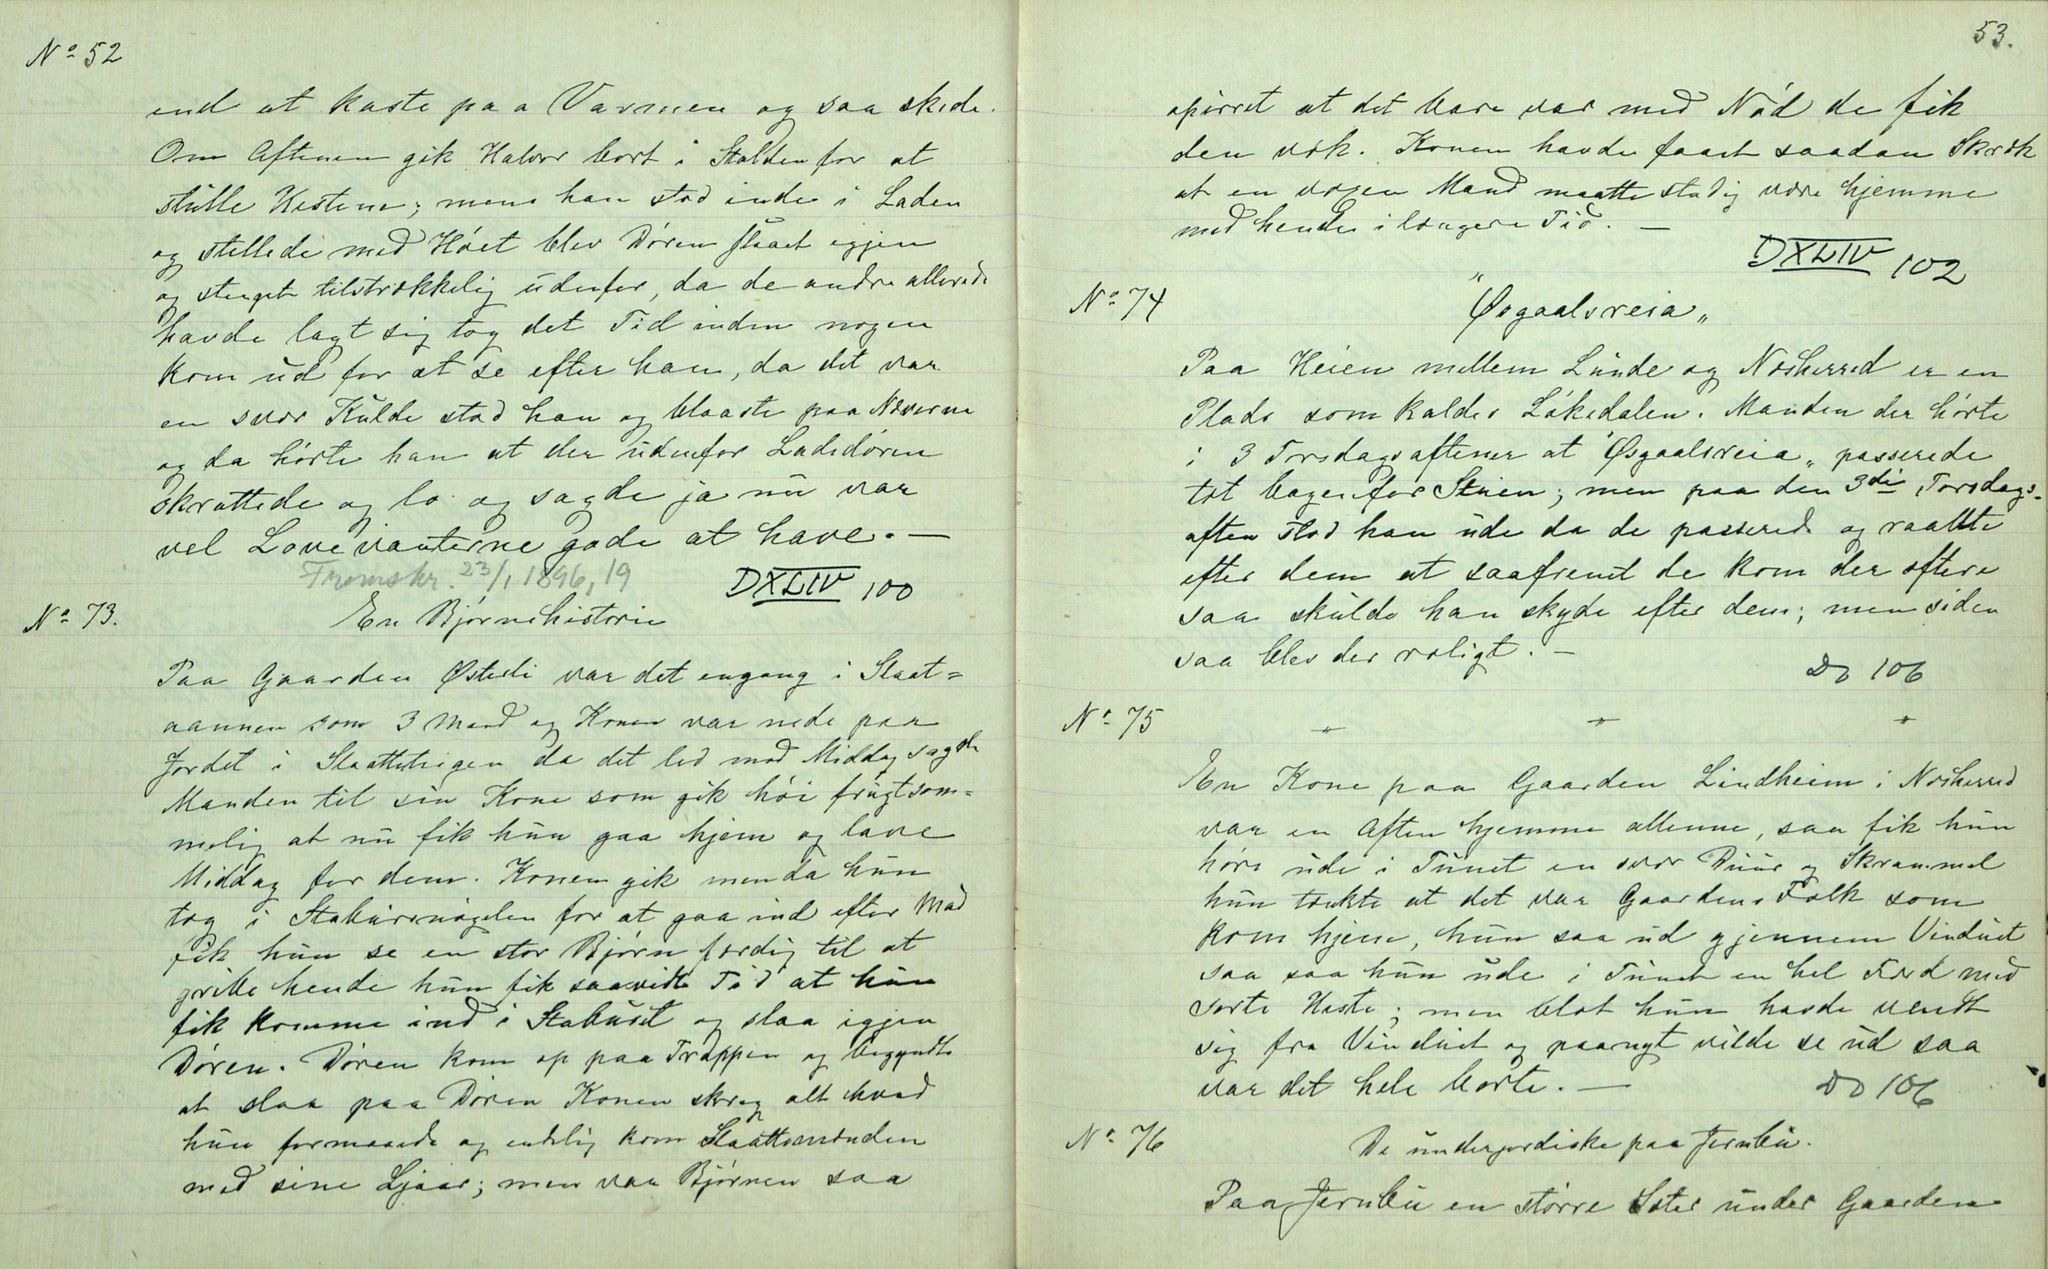 No 52
end at kaste paa Varmen og saa skede.
Om Aftenen gik Halvor bort i Stalden for at
stille Hestene; mens han stod inde i Laden
og stellede med Høet blev Døren slaaet igjen
og stenget tilstrækkelig udenfor, da de andre allerede
havde lagt sig tog det Tid inden nogen
kom ud for at se efter ham, da det var
en svær Kulde stod han og blaaste paa Næverne
og da hørte han at der udenfor Ladedøren
skrattede og lo og sagde ja nu var
vel Lovevanterne gode at have. —
Fremskr. 23/1 1896, 19
DXLIV 100
No 73.
En Bjørnehistorie
Paa Gaarden Østerli var det engang i Slaat=
aannen som 3 Mand og Konen var nede paa
Jordet i Slaatteteigen da det led mod Middag sagde
Manden til sin Kone som gik høi frugtsom=
melig at nu fik hun gaa hjem og lave
Middag for dem. Konen gik men da hun
tog i Stabursnøgelen for at gaa ind efter Mad
fik hun se en stor Bjørn færdig til at
gribe hende hun fik saavidt Tid at hun
fik komme ind i Staburet og slaa igjen
Døren. Døren kom op paa Trappen og begyndte
at slaa paa Døren Konen skreg alt hvad
hun formaaede og endelig kom Slaattemændene
med sine Ljaar; men var Bjørnen saa
53.
opirret at det bare var med Nød de fik
den væk. Konen havde faaet saadan Skræk
at en voxen Mand maatte stadig være hjemme
med hende i længere Tid. —
DXLIV 102
No 74
"Øsgaalsreia"
Paa Heien mellem Lunde og Nesherred er en
Plads som kaldes Løkedalen. Manden der hørte
i 3 Torsdagsaftener at "Øsgaalsreia" passerede
tæt bagenfor Stuen; men paa den 3die Torsdags-
aften stod han ude da de passerede og raabte
efter dem at saafremt de kom der oftere
saa skulde han skyde efter dem; men siden
saa blev der roligt. —
Do 106
No 75
" " "
En Kone paa Gaarden Lindheim i Nesherred
var en Aften hjemme allenne, saa fik hun
høre ude i Tunet en svær Duur og Skrammel
hun tænkte at det var Gaardens Folk som
kom hjem, hun saa ud gjennem Vinduet
saa saa hun ude i Tunet en hel Færd med
sorte Heste; men blot hun havde vendt
sig fra Vinduet og paanyt vilde se ud saa
var det hele borte. —
Do 106
No 76
De underjordiske paa Jernbu.
Paa Jernbu en større Sæter under Gaarden